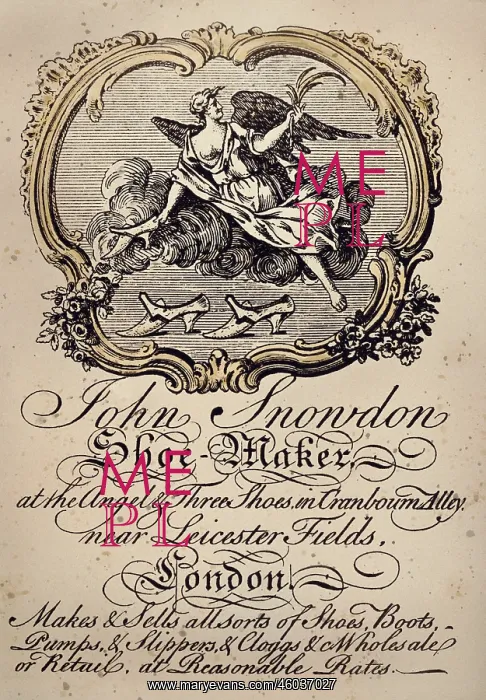 ME
PL
John Snowdon
Shoe-Maker,
at the Angel & Three Shoes, in Cranbourn Alley,
near Leicester Fields,
London.
ME
PL
Makes & Sells all sorts of Shoes, Boots,
Pumps, & Slippers, & Cloggs &c. Wholesale
or Retail, at Reasonable Rates.
www.maryevans.com/46037027